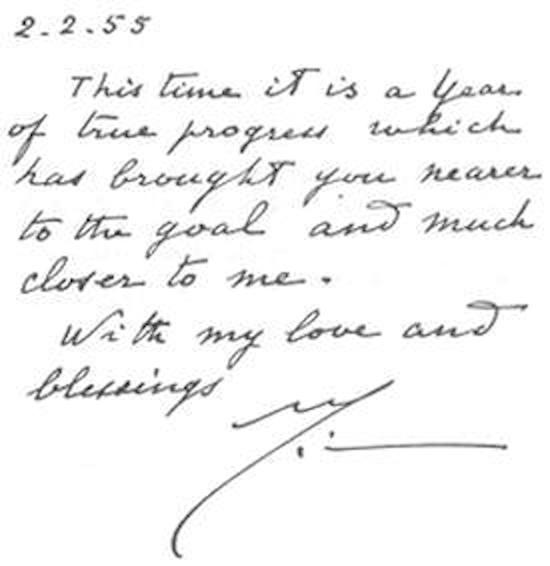 2.2.55
This time it is a year
of true progress which
has brought you nearer
to the goal and much
closer to me.
With my love and
blessings